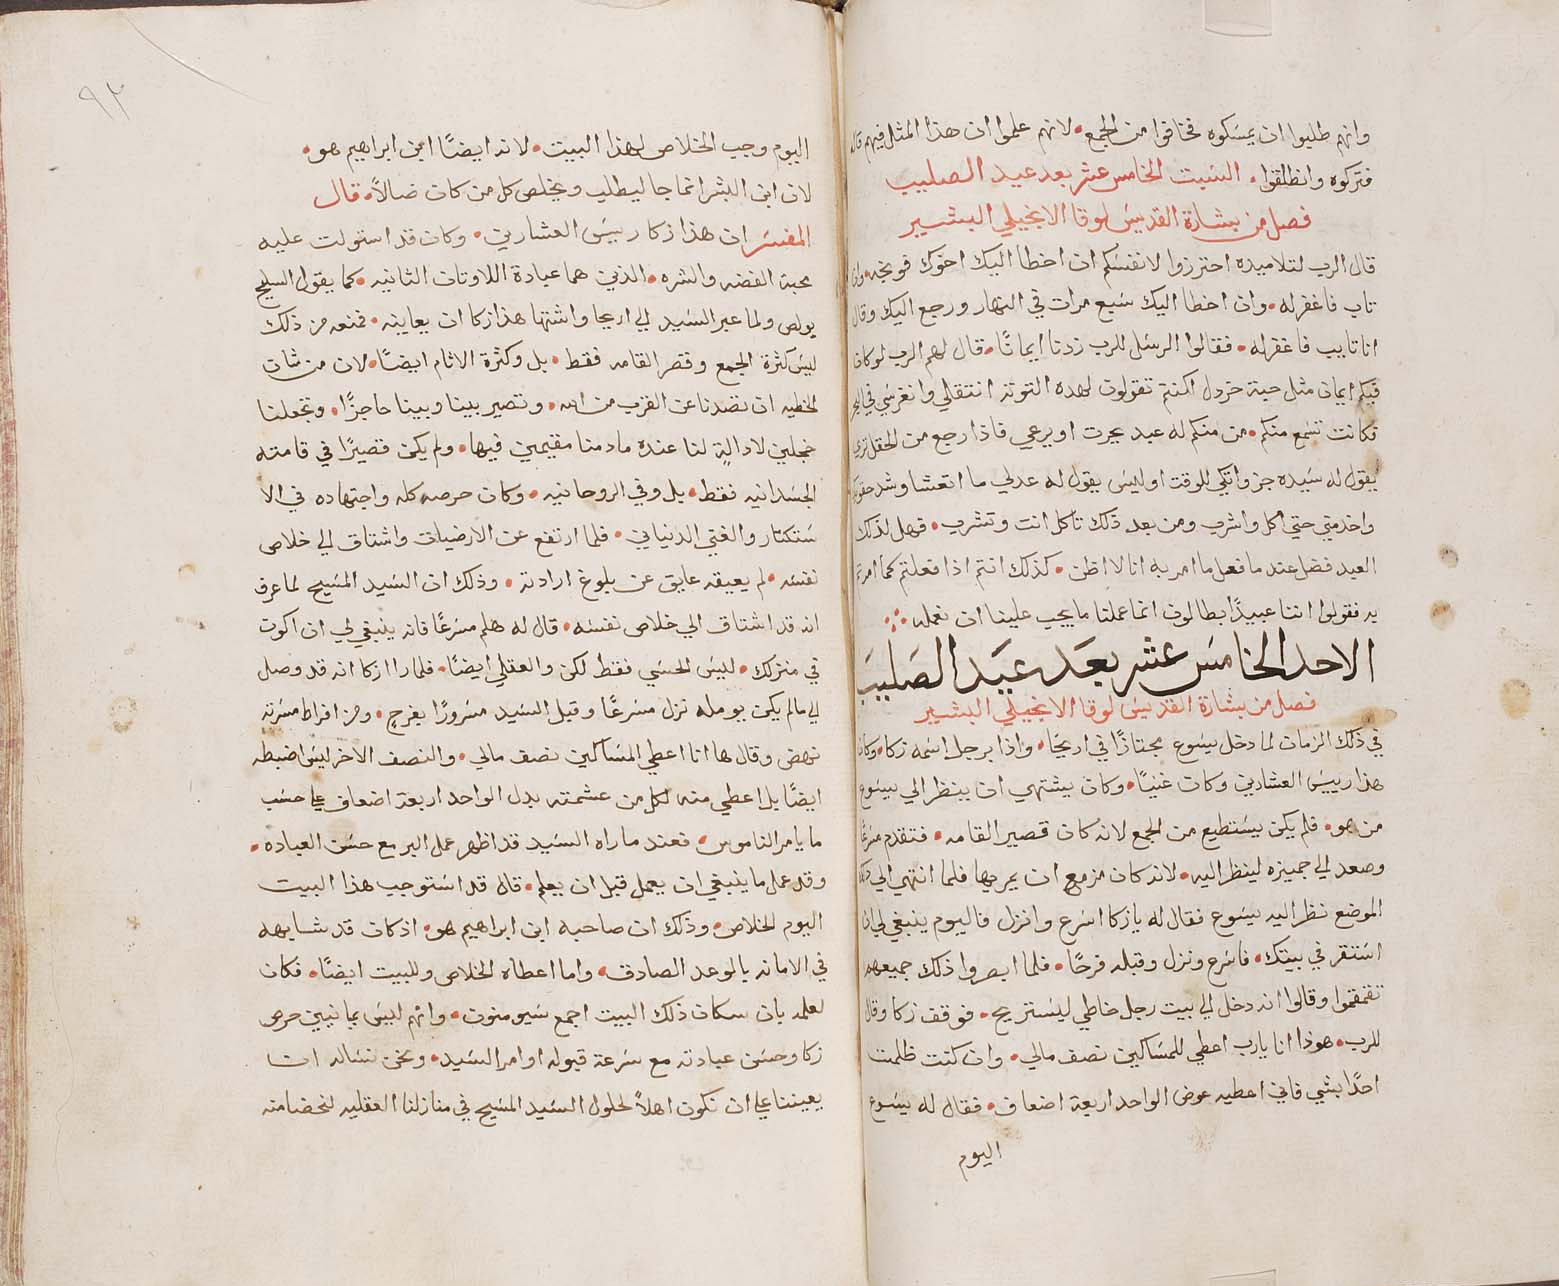 وانهم طلبوا ان يمسكوه فخافوا من الجمع • لانهم علموا ان هذا المثل فيهم قاله
فتركوه وانطلقوا • السبت الخامس عشر بعد عيد الصليب
فصل من بشارة القديس لوقا الانجيلي البشير
قال الرب لتلاميده احترزوا لانفسكم ان اخطا اليك اخوك فوبخه • وان
تاب فاغفرله • وان اخطا اليك سبع مرات في النهار ورجع اليك وقال
انا تايب فاغفرله • فقالوا الرسل للرب زدنا ايمانًا • قال لهم الرب لو كان
فيكم ايمان مثل حبة خردل اكنتم تقولون لهده التوته انتقلي وانغرسي في البحر
فكانت تسمع منكم • من منكم له عبد يحرت او يرعي فاذا رجع من الحقل
يقول له سيده جز واتكي للوقت اوليس يقول له عدلي ما اتعشا وشد حقويك
واخدمني حتي اكل واشرب ومن بعد ذلك تاكل انت وتشرب • فهل لذلك
العبد فضل عند ما فعل ما امر به انا لا اظن • كذلك انتم اذا فعلتم كما امرتم
به فقولوا اننا عبيدًا بطالون انما عملنا ما يجب علينا ان نعمله
الاحد الخامس عشر بعد عيد الصليب
فصل من بشارة القديس لوقا الانجيلي البشير
في ذلك الزمان لما دخل يسوع مجتازًا في اريحا • واذا برجل اسمه زكا • وكان
هذا رييس العشارين وكان غنيًا • وكان يشتهي ان ينظر الي يسوع
من هو • فلم يكن يستطيع من الجمع لانه كان قصير القامه • فتقدم مسرعًا
وصعد الي جميزه لينظر اليه • لانه كان مزمع ان يمر بها فلما انتهي الي ذلك
الموضع نظر اليه يسوع فقال له يا زكا اسرع وانزل فاليوم ينبغي لي ان
استقر في بيتك • فاسرع ونزل وقبله فرحًا • فلما ابصروا ذلك جميعهم
تقمقموا وقالوا انه دخل الي بيت رجل خاطي ليستريح • فوقف زكا وقال
للرب • هوذا انا يارب اعطي للمساكين نصف مالي • وان كنت ظلمت
احدًا بشي فاني اعطيه عوض الواحد اربعة اضعاف • فقال له يسوع
اليوم
٩٢
اليوم وجب الخلاص لهذا البيت • لانه ايضًا ابن ابراهيم هو •
لان ابن البشر انما جا ليطلب ويخلص كل من كان ضالاً • قال
المفسر ان هذا زكا رييس العشارين • وكان قد استولت عليه
محبة الفضه والشره • الذين هما عبادة اللاوتان الثانيه • كما يقول السليح
بولص ولما عبر السيد الي اريحا واشتها هذا زكا ان يعاينه • فمنعه من ذلك
ليس كثرة الجمع وقصر القامه فقط • بل وكثرة الاثام ايضًا • لان من شان
الخطيه ان تصدنا عن القرب من الله • وتصير بيننا وبينه حاجزًا • وتجعلنا
خجلين لا دالة لنا عنده ما دمنا مقيمين فيها • ولم يكن قصيرًا في قامته
الجسدانيه فقط • بل وفي الروحانيه • وكان حرصه كله واجتهاده في الا
ستكتار والغني الدنياني • فلما ارتفع عن الارضيات واشتاق الي خلاص
نفسه • لم يعيقه عايق عن بلوغ ارادته • وذلك ان السيد المسيح لما عرف
انه قد اشتاق الي خلاص نفسه • قال له هلم مسرعًا فانه ينبغي لي ان اكون
في منزلك • لليس الحسي فقط لكن والعقلي ايضًا • فلما راا زكا انه قد وصل
الي ما لم يكن يومله نزل مسرعًا وقبل السيد مسرورًا بفرح • ومن افراط مسرته
نهض وقال ها انا اعطي المساكين نصف مالي • والنصف الاخر ليس اضبطه
ايضًا بل اعطي منه لكل من غشمته بدل الواحد اربعة اضعاف علي حسب
ما يامر الناموس • فعند ما راه السيد قد اظهر عمل البر مع حسن العباده •
وقد عمل ما ينبغي ان يعمل قبل ان يعلم • قال قد استوجب هذا البيت
اليوم الخلاص • وذلك ان صاحبه ابن ابراهيم هو • اذ كان قد شابهه
في الامانه بالوعد الصادق • واما اعطاه الخلاص وللبيت ايضًا • فكان
لعلمه بان سكان ذلك البيت اجمع سيومنون • وانهم ليس بمانيين حرص
زكا وحسن عبادته مع سرعة قبوله اوامر السيد • ونحن نساله ان
يعيننا علي ان نكون اهلاً لحلول السيد المسيح في منازلنا العقليه